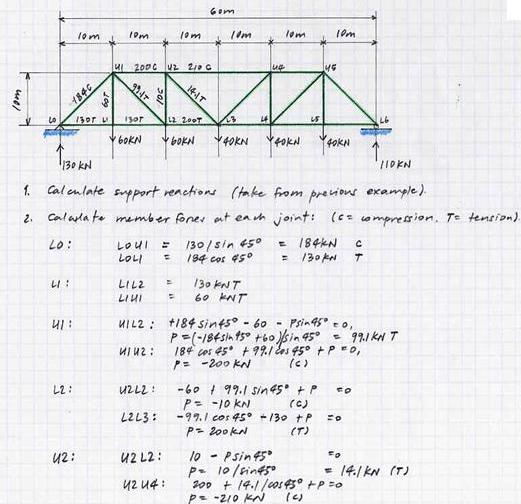 60m
10m 10m 10m 10m 10m 10m
U1 200C U2 210C U4 U5
10m
184C 60T 99.1T 10C 14.1T
L0 130T L1 130T L2 200T L3 L4 L5 L6
60KN 60KN 40KN 40KN 40KN
130KN 110KN
1. Calculate support reactions (take from previous example).
2. Calculate member forces at each joint: (C = compression, T = tension).
L0: L0U1 = 130/sin 45° = 184KN C
L0L1 = 184 cos 45° = 130KN T
L1: L1L2 = 130KNT
L1U1 = 60 KNT
U1: U1L2: +184 sin45° - 60 - Psin45° = 0,
P = (-184sin45° +60)/sin45° = 99.1KN T
U1U2: 184 cos 45° + 99.1cos45° + P = 0,
P = -200KN (C)
L2: U2L2: -60 + 99.1 sin45° + P = 0
P = -10KN (C)
L2L3: -99.1 cos 45° -130 + P = 0
P = 200KN (T)
U2: U2L2: 10 - Psin45° = 0
P = 10/sin45° = 14.1KN (T)
U2U4: 200 + 14.1/cos45° + P = 0
P = -210KN (C)